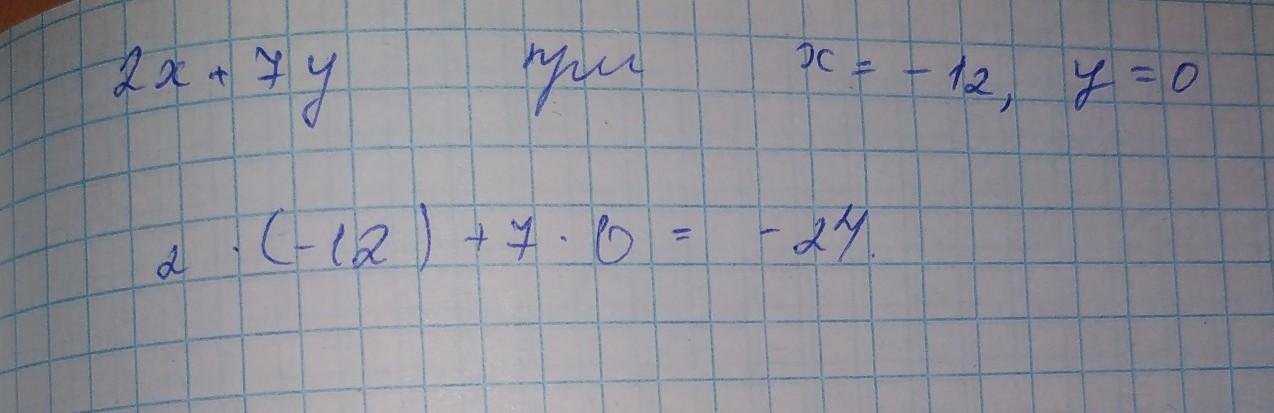 2x + 7y при x = -12, y = 0
2 · (-12) + 7 · 0 = -24.